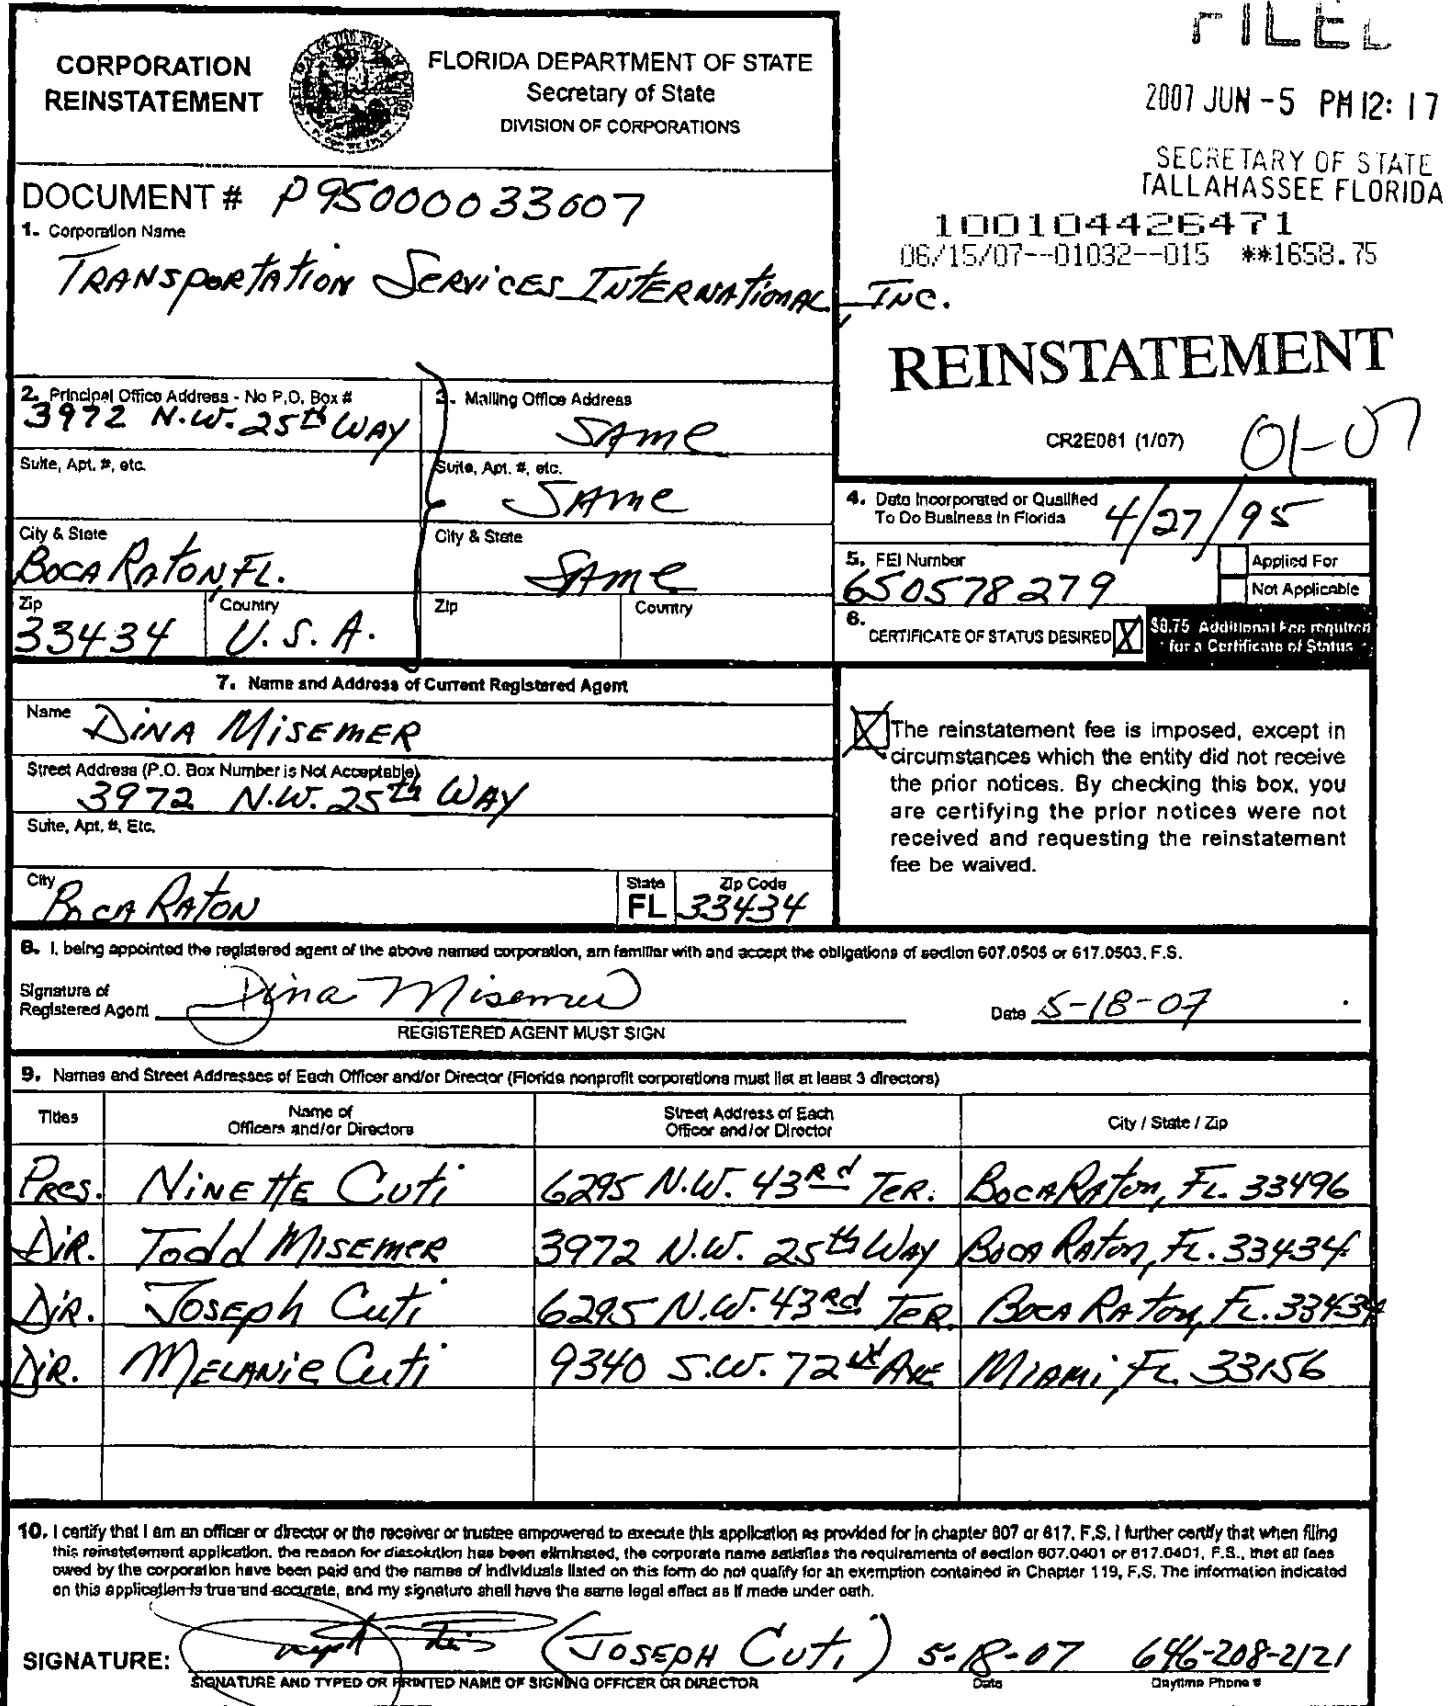 FILED
2007 JUN -5 PM 12: 17
SECRETARY OF STATE
TALLAHASSEE FLORIDA
100104426471
06/15/07--01032--015 **1658.75
CORPORATION
REINSTATEMENT
FLORIDA DEPARTMENT OF STATE
Secretary of State
DIVISION OF CORPORATIONS
DOCUMENT # P95000033607
1. Corporation Name
TRANSPORTATION SERVICES INTERNATIONAL, INC.
REINSTATEMENT
CR2E081 (1/07)
01-07
2. Principal Office Address - No P.O. Box #
3972 N.W. 25th WAY
3. Mailing Office Address
SAME
Suite, Apt. #, etc.
Suite, Apt. #, etc.
SAME
City & State
BOCA RATON, FL.
City & State
SAME
Zip
33434
Country
U.S.A.
Zip
Country
4. Date Incorporated or Qualified
To Do Business in Florida
4/27/95
5. FEI Number
650578279
Applied For
Not Applicable
6.
CERTIFICATE OF STATUS DESIRED X
$8.75 Additional Fee required
for a Certificate of Status
7. Name and Address of Current Registered Agent
Name
DINA MISEMER
Street Address (P.O. Box Number is Not Acceptable)
3972 N.W. 25th WAY
Suite, Apt. #, Etc.
City
BOCA RATON
State
FL
Zip Code
33434
X The reinstatement fee is imposed, except in
circumstances which the entity did not receive
the prior notices. By checking this box, you
are certifying the prior notices were not
received and requesting the reinstatement
fee be waived.
8. I, being appointed the registered agent of the above named corporation, am familiar with and accept the obligations of section 607.0505 or 617.0503, F.S.
Signature of
Registered Agent
Dina Misemer
Date 5-18-07
REGISTERED AGENT MUST SIGN
9. Names and Street Addresses of Each Officer and/or Director (Florida nonprofit corporations must list at least 3 directors)
Titles
Name of
Officers and/or Directors
Street Address of Each
Officer and/or Director
City / State / Zip
Pres. NINETTE Cuti 6295 N.W. 43Rd TER. BOCA RATON, FL. 33496
DIR. Todd MISEMER 3972 N.W. 25th WAY BOCA RATON, FL. 33434
DIR. JOSEPH Cuti 6295 N.W. 43Rd TER. BOCA RATON, FL. 33434
DIR. MELANIE Cuti 9340 S.W. 72nd AVE MIAMI, FL. 33156
10. I certify that I am an officer or director or the receiver or trustee empowered to execute this application as provided for in chapter 607 or 617, F.S. I further certify that when filing
this reinstatement application, the reason for dissolution has been eliminated, the corporate name satisfies the requirements of section 607.0401 or 617.0401, F.S., that all fees
owed by the corporation have been paid and the names of individuals listed on this form do not qualify for an exemption contained in Chapter 119, F.S. The information indicated
on this application is true and accurate, and my signature shall have the same legal effect as if made under oath.
SIGNATURE: (JOSEPH Cuti) 5-18-07 646-208-2121
SIGNATURE AND TYPED OR PRINTED NAME OF SIGNING OFFICER OR DIRECTOR
Date
Daytime Phone #